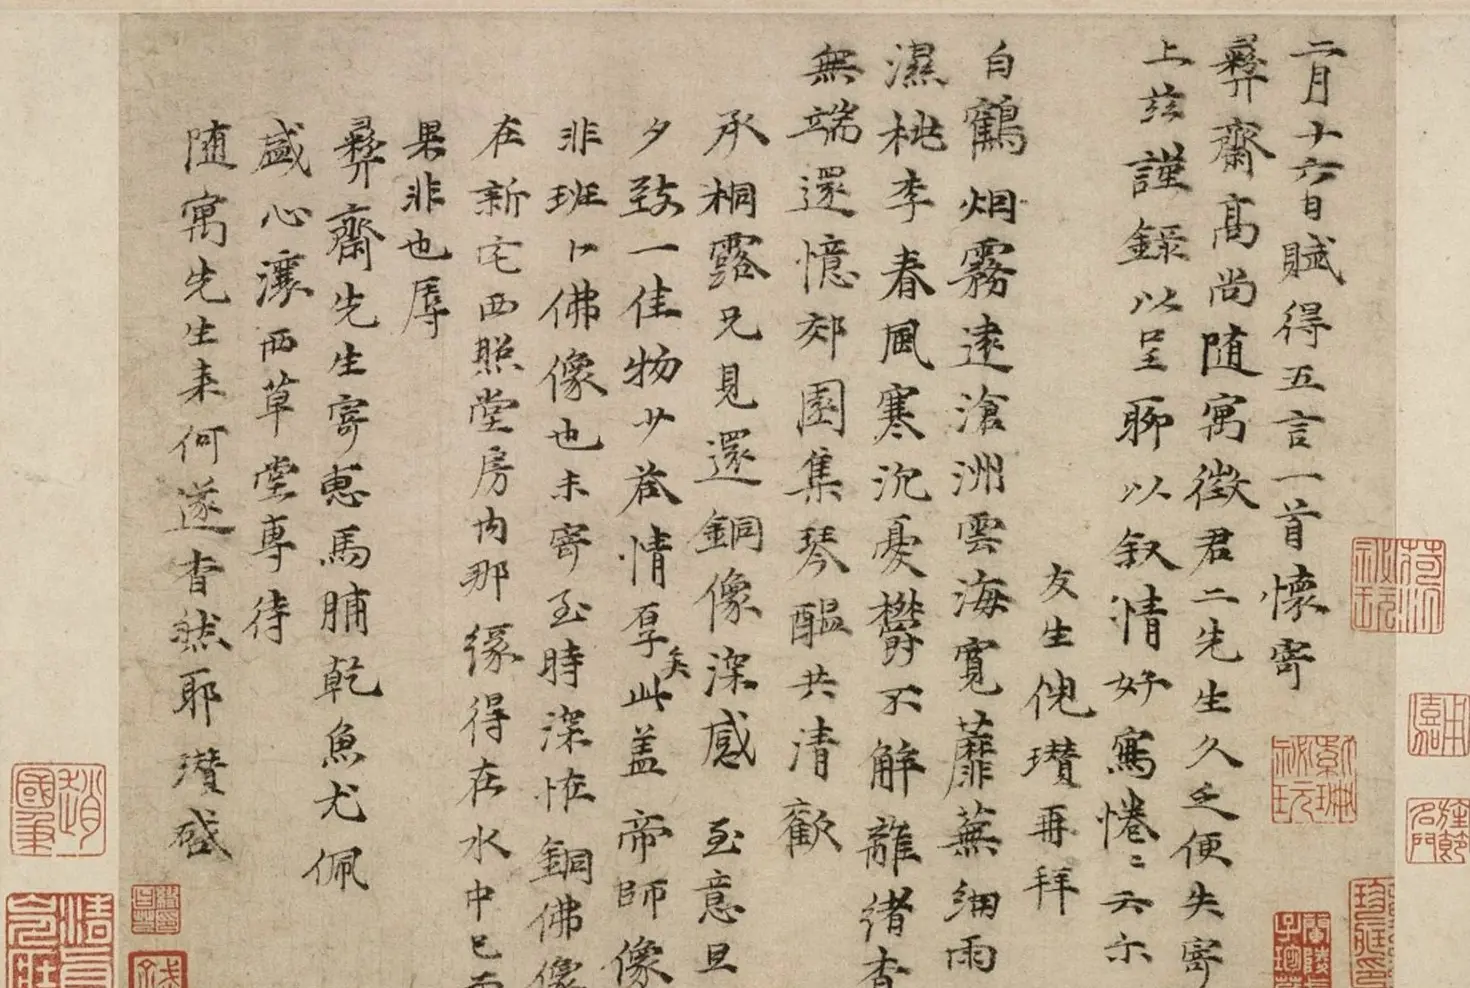 二月十六日賦得五言一首懷寄
彞齋高尚隨寓徵君二先生久乏便失寄
上茲謹錄以呈聊以叙情好寫惓〻云尓
友生倪瓚再拜
白鶴烟霧遠滄洲雲海寬蘼蕪細雨
濕桃李春風寒沉憂欝不解離緒杳
無端還憶郊園集琴醖共清歡
承桐露兄見還銅像深感至意旦
夕致一佳物少荅情厚矣此盖帝師像
非班卜佛像也未寄至時深恠銅佛像
在新宅西照堂房内那緣得在水中已而
果非也辱
彞齋先生寄惠馬脯乾魚尤佩
盛心瀼西草堂專待
随寓先生来何遂杳然耶瓚啟